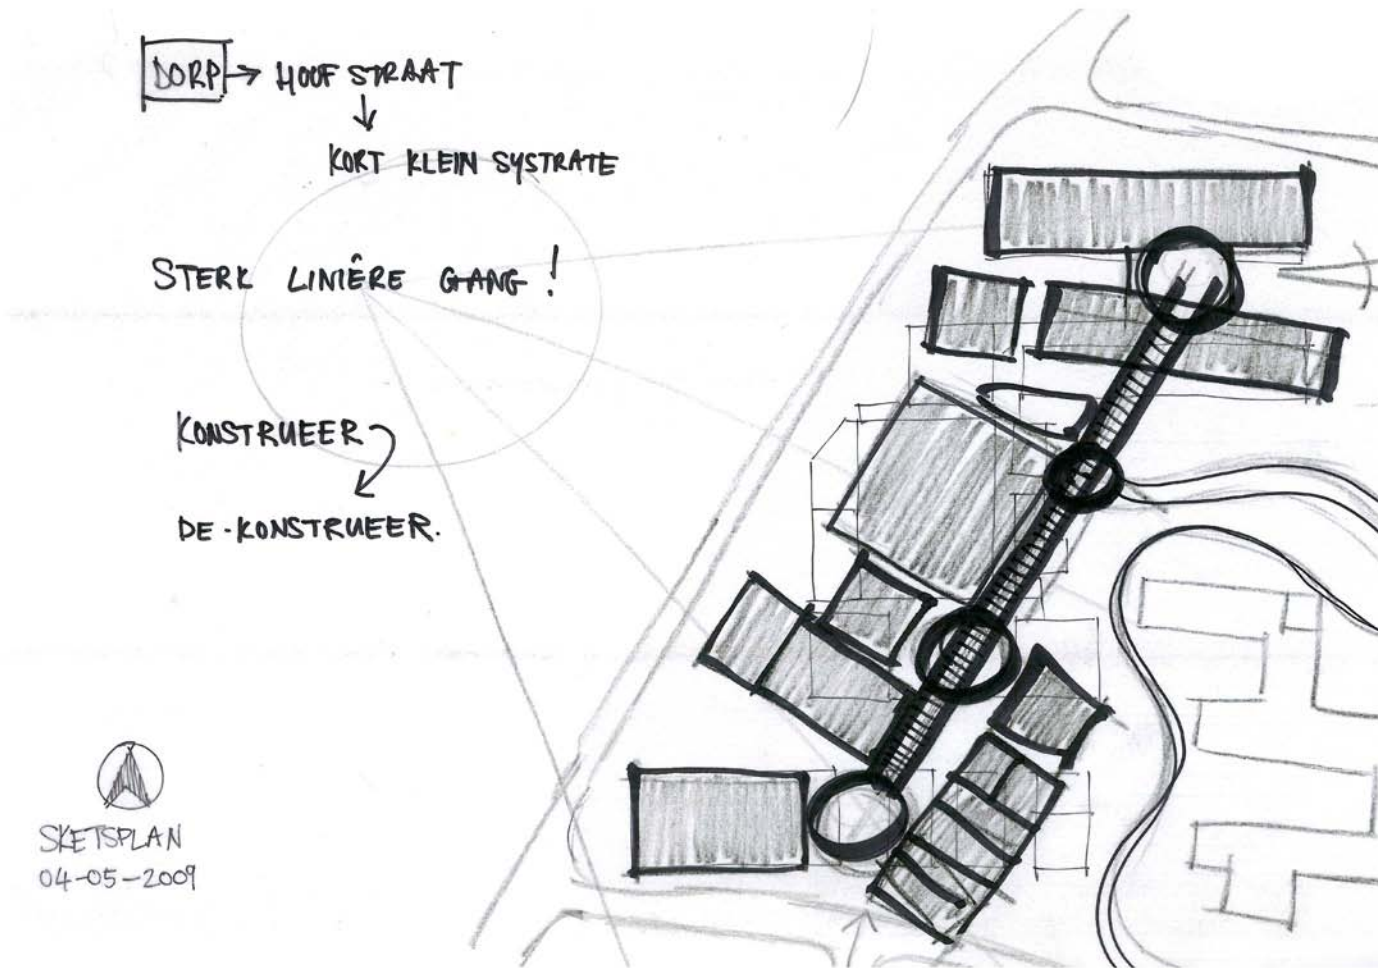 DORP → HOOF STRAAT
↓
KORT KLEIN SYSTRATE
STERK LINIÊRE GANG!
KONSTRUEER
DE-KONSTRUEER.
SKETSPLAN
04-05-2009